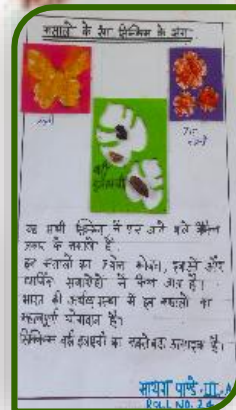 मसालों के रंग सिक्किम के संग
हल्दी
बड़ी इलायची
यह सभी सिक्किम में पाए जाने वाले
प्रकार के मसाले हैं।
इन मसालों का प्रयोग भोजन, दवाओं और
धार्मिक समारोहों में किया जाता है।
भारत की अर्थव्यवस्था में इन मसालों का
महत्वपूर्ण योगदान है।
सिक्किम बड़ी इलायची का सबसे बड़ा उत्पादक है।
सायरा पाण्डे III-A
ROLL NO. 24